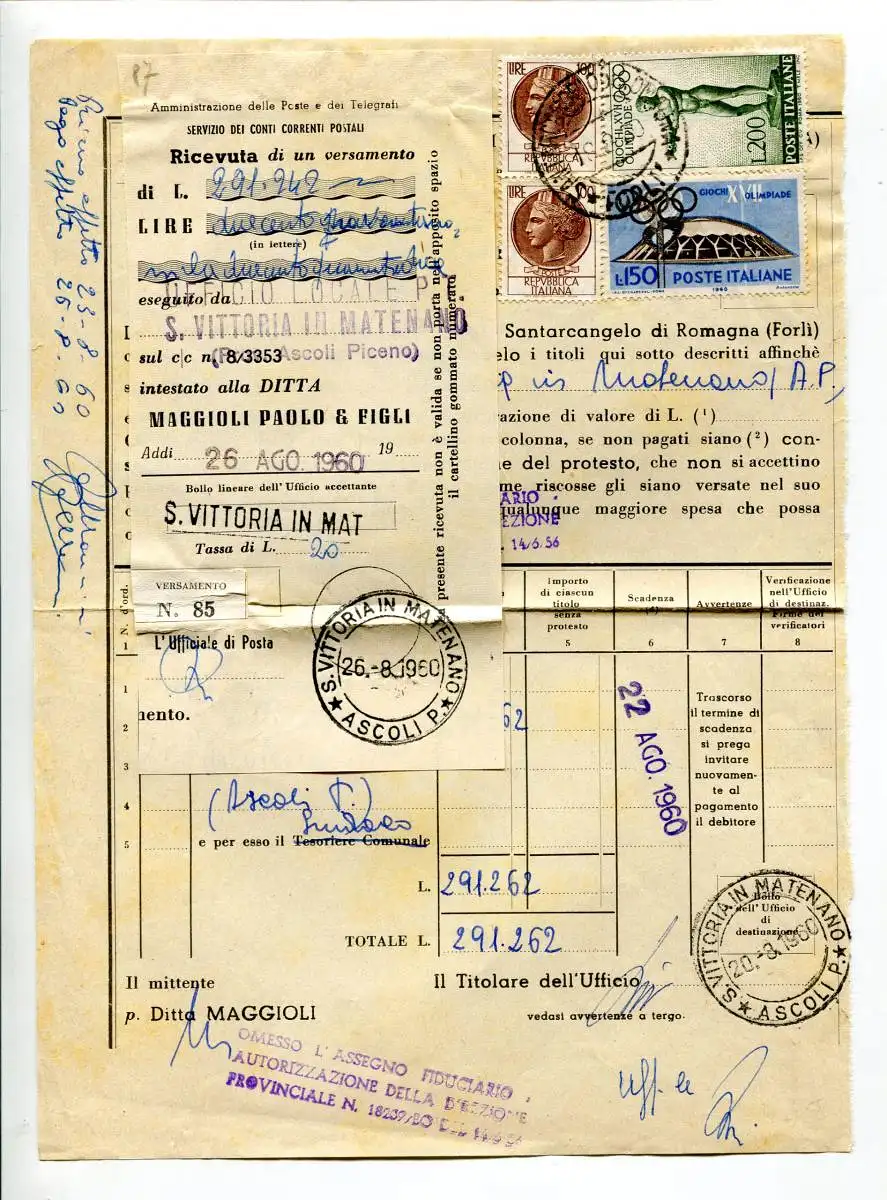 87
Amministrazione delle Poste e dei Telegrafi
SERVIZIO DEI CONTI CORRENTI POSTALI
Ricevuta di un versamento
di L. 291.242
LIRE duecentonovantuno
(in lettere)
mila duecentoquarantadue
eseguito da
UFFICIO LOCALE P.
S. VITTORIA IN MATENANO
(Ascoli Piceno)
sul c|c n. 8/3353
intestato alla DITTA
MAGGIOLI PAOLO & FIGLI
Addi 26 AGO. 1960 19
Bollo lineare dell'Ufficio accettante
S. VITTORIA IN MAT
Tassa di L. 20
VERSAMENTO
N. 85
L'Ufficiale di Posta
a presente ricevuta non è valida se non porta nell'apposito spazio
il cartellino gommato numerato
S. VITTORIA IN MATENANO
26.-8.1960
★ ASCOLI P. ★
23-8-60
26-8-60
LIRE 100
REPVBBLICA
ITALIANA
GIOCHI XVII OLIMPIADE
L.200 POSTE ITALIANE
LIRE 100
REPVBBLICA
ITALIANA
GIOCHI XVII OLIMPIADE
L.150 POSTE ITALIANE
1960
Santarcangelo di Romagna (Forlì)
elo i titoli qui sotto descritti affinchè
in Matenano (A.P.,
razione di valore di L. (¹)
colonna, se non pagati siano (²) con-
e del protesto, che non si accettino
me riscosse gli siano versate nel suo
qualunque maggiore spesa che possa
ARIO
EZIONE
. 14/6/56
N. d'ord.
1
Importo
di ciascun
titolo
senza
protesto
5
Scadenza
6
Avvertenze
7
Verificazione
nell'Ufficio
di destinaz.
Firme dei
verificatori
8
1
2
3
4
5
mento.
62
22 AGO. 1960
Trascorso
il termine di
scadenza
si prega
invitare
nuovamen-
te al
pagamento
il debitore
(Ascoli P.)
Sindaco
e per esso il Tesoriere Comunale
L. 291.262
TOTALE L. 291.262
Bollo
dell'Ufficio
di
destinazione
S. VITTORIA IN MATENANO
20.-8.1960
★ ASCOLI P. ★
Il mittente
p. Ditta MAGGIOLI
Il Titolare dell'Ufficio
vedasi avvertenze a tergo.
OMESSO L'ASSEGNO FIDUCIARIO
AUTORIZZAZIONE DELLA DIREZIONE
PROVINCIALE N. 18239/BO DEL 14/6/56